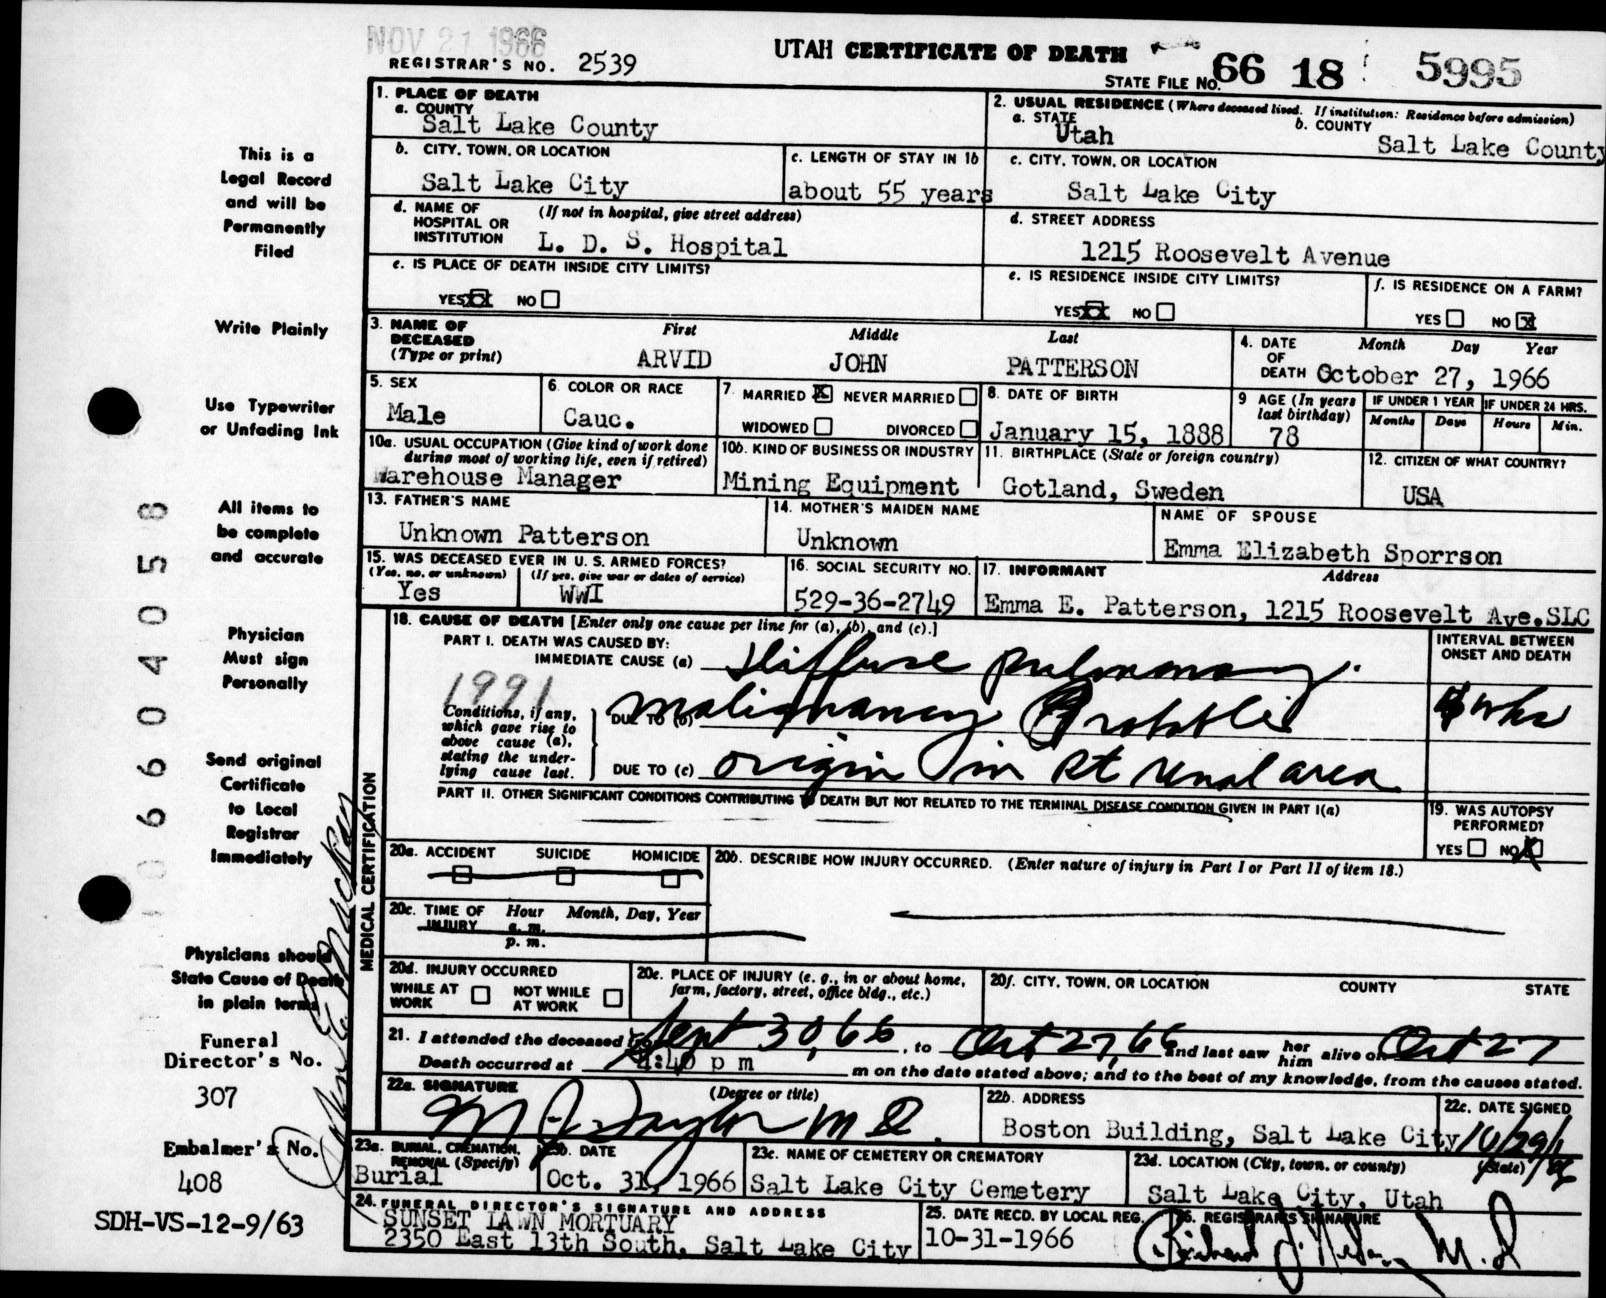 NOV 21 1966
REGISTRAR'S NO. 2539
UTAH CERTIFICATE OF DEATH
STATE FILE NO. 66 18 5995
This is a
Legal Record
and will be
Permanently
Filed
Write Plainly
Use Typewriter
or Unfading Ink
All items to
be complete
and accurate
Physician
Must sign
Personally
Send original
Certificate
to Local
Registrar
Immediately
Physicians should
State Cause of Death
in plain terms
Funeral
Director's No.
307
Embalmer's No.
408
SDH-VS-12-9/63
06604058
1. PLACE OF DEATH
a. COUNTY
Salt Lake County
b. CITY, TOWN, OR LOCATION
Salt Lake City
c. LENGTH OF STAY IN 1b
about 55 years
d. NAME OF HOSPITAL OR INSTITUTION (If not in hospital, give street address)
L. D. S. Hospital
e. IS PLACE OF DEATH INSIDE CITY LIMITS?
YES XX NO
2. USUAL RESIDENCE (Where deceased lived. If institution: Residence before admission)
a. STATE
Utah
b. COUNTY
Salt Lake County
c. CITY, TOWN, OR LOCATION
Salt Lake City
d. STREET ADDRESS
1215 Roosevelt Avenue
e. IS RESIDENCE INSIDE CITY LIMITS?
YES XX NO
f. IS RESIDENCE ON A FARM?
YES NO X
3. NAME OF DECEASED (Type or print)
First Middle Last
ARVID JOHN PATTERSON
4. DATE OF DEATH Month Day Year
October 27, 1966
5. SEX
Male
6. COLOR OR RACE
Cauc.
7. MARRIED X NEVER MARRIED
WIDOWED DIVORCED
8. DATE OF BIRTH
January 15, 1888
9. AGE (In years last birthday)
78
IF UNDER 1 YEAR
Months Days
IF UNDER 24 HRS.
Hours Min.
10a. USUAL OCCUPATION (Give kind of work done during most of working life, even if retired)
Warehouse Manager
10b. KIND OF BUSINESS OR INDUSTRY
Mining Equipment
11. BIRTHPLACE (State or foreign country)
Gotland, Sweden
12. CITIZEN OF WHAT COUNTRY?
USA
13. FATHER'S NAME
Unknown Patterson
14. MOTHER'S MAIDEN NAME
Unknown
NAME OF SPOUSE
Emma Elizabeth Sporrson
15. WAS DECEASED EVER IN U. S. ARMED FORCES?
(Yes, no, or unknown) (If yes, give war or dates of service)
Yes WWI
16. SOCIAL SECURITY NO.
529-36-2749
17. INFORMANT Address
Emma E. Patterson, 1215 Roosevelt Ave.SLC
MEDICAL CERTIFICATION
18. CAUSE OF DEATH [Enter only one cause per line for (a), (b), and (c).]
PART I. DEATH WAS CAUSED BY:
IMMEDIATE CAUSE (a) Diffuse pulmonary
1991
Conditions, if any, which gave rise to above cause (a), stating the underlying cause last.
DUE TO (b) malignancy Probable
DUE TO (c) origin in rt renal area
INTERVAL BETWEEN ONSET AND DEATH
wks
PART II. OTHER SIGNIFICANT CONDITIONS CONTRIBUTING TO DEATH BUT NOT RELATED TO THE TERMINAL DISEASE CONDITION GIVEN IN PART I(a)
19. WAS AUTOPSY PERFORMED?
YES NO X
20a. ACCIDENT SUICIDE HOMICIDE
20b. DESCRIBE HOW INJURY OCCURRED. (Enter nature of injury in Part I or Part II of item 18.)
20c. TIME OF INJURY Hour Month, Day, Year
a. m.
p. m.
20d. INJURY OCCURRED
WHILE AT WORK NOT WHILE AT WORK
20e. PLACE OF INJURY (e. g., in or about home, farm, factory, street, office bldg., etc.)
20f. CITY, TOWN, OR LOCATION COUNTY STATE
21. I attended the deceased Sept 30, 66, to Oct 27, 66 and last saw her him alive on Oct 27
Death occurred at 4:40 p m m on the date stated above; and to the best of my knowledge, from the causes stated.
22a. SIGNATURE (Degree or title)
M J Taylor M D.
22b. ADDRESS
Boston Building, Salt Lake City
22c. DATE SIGNED
10/29/66
23a. BURIAL, CREMATION, REMOVAL (Specify)
Burial
23b. DATE
Oct. 31, 1966
23c. NAME OF CEMETERY OR CREMATORY
Salt Lake City Cemetery
23d. LOCATION (City, town, or county) (State)
Salt Lake City, Utah
24. FUNERAL DIRECTOR'S SIGNATURE AND ADDRESS
SUNSET LAWN MORTUARY
2350 East 13th South, Salt Lake City
25. DATE RECD. BY LOCAL REG.
10-31-1966
26. REGISTRAR'S SIGNATURE
M.D